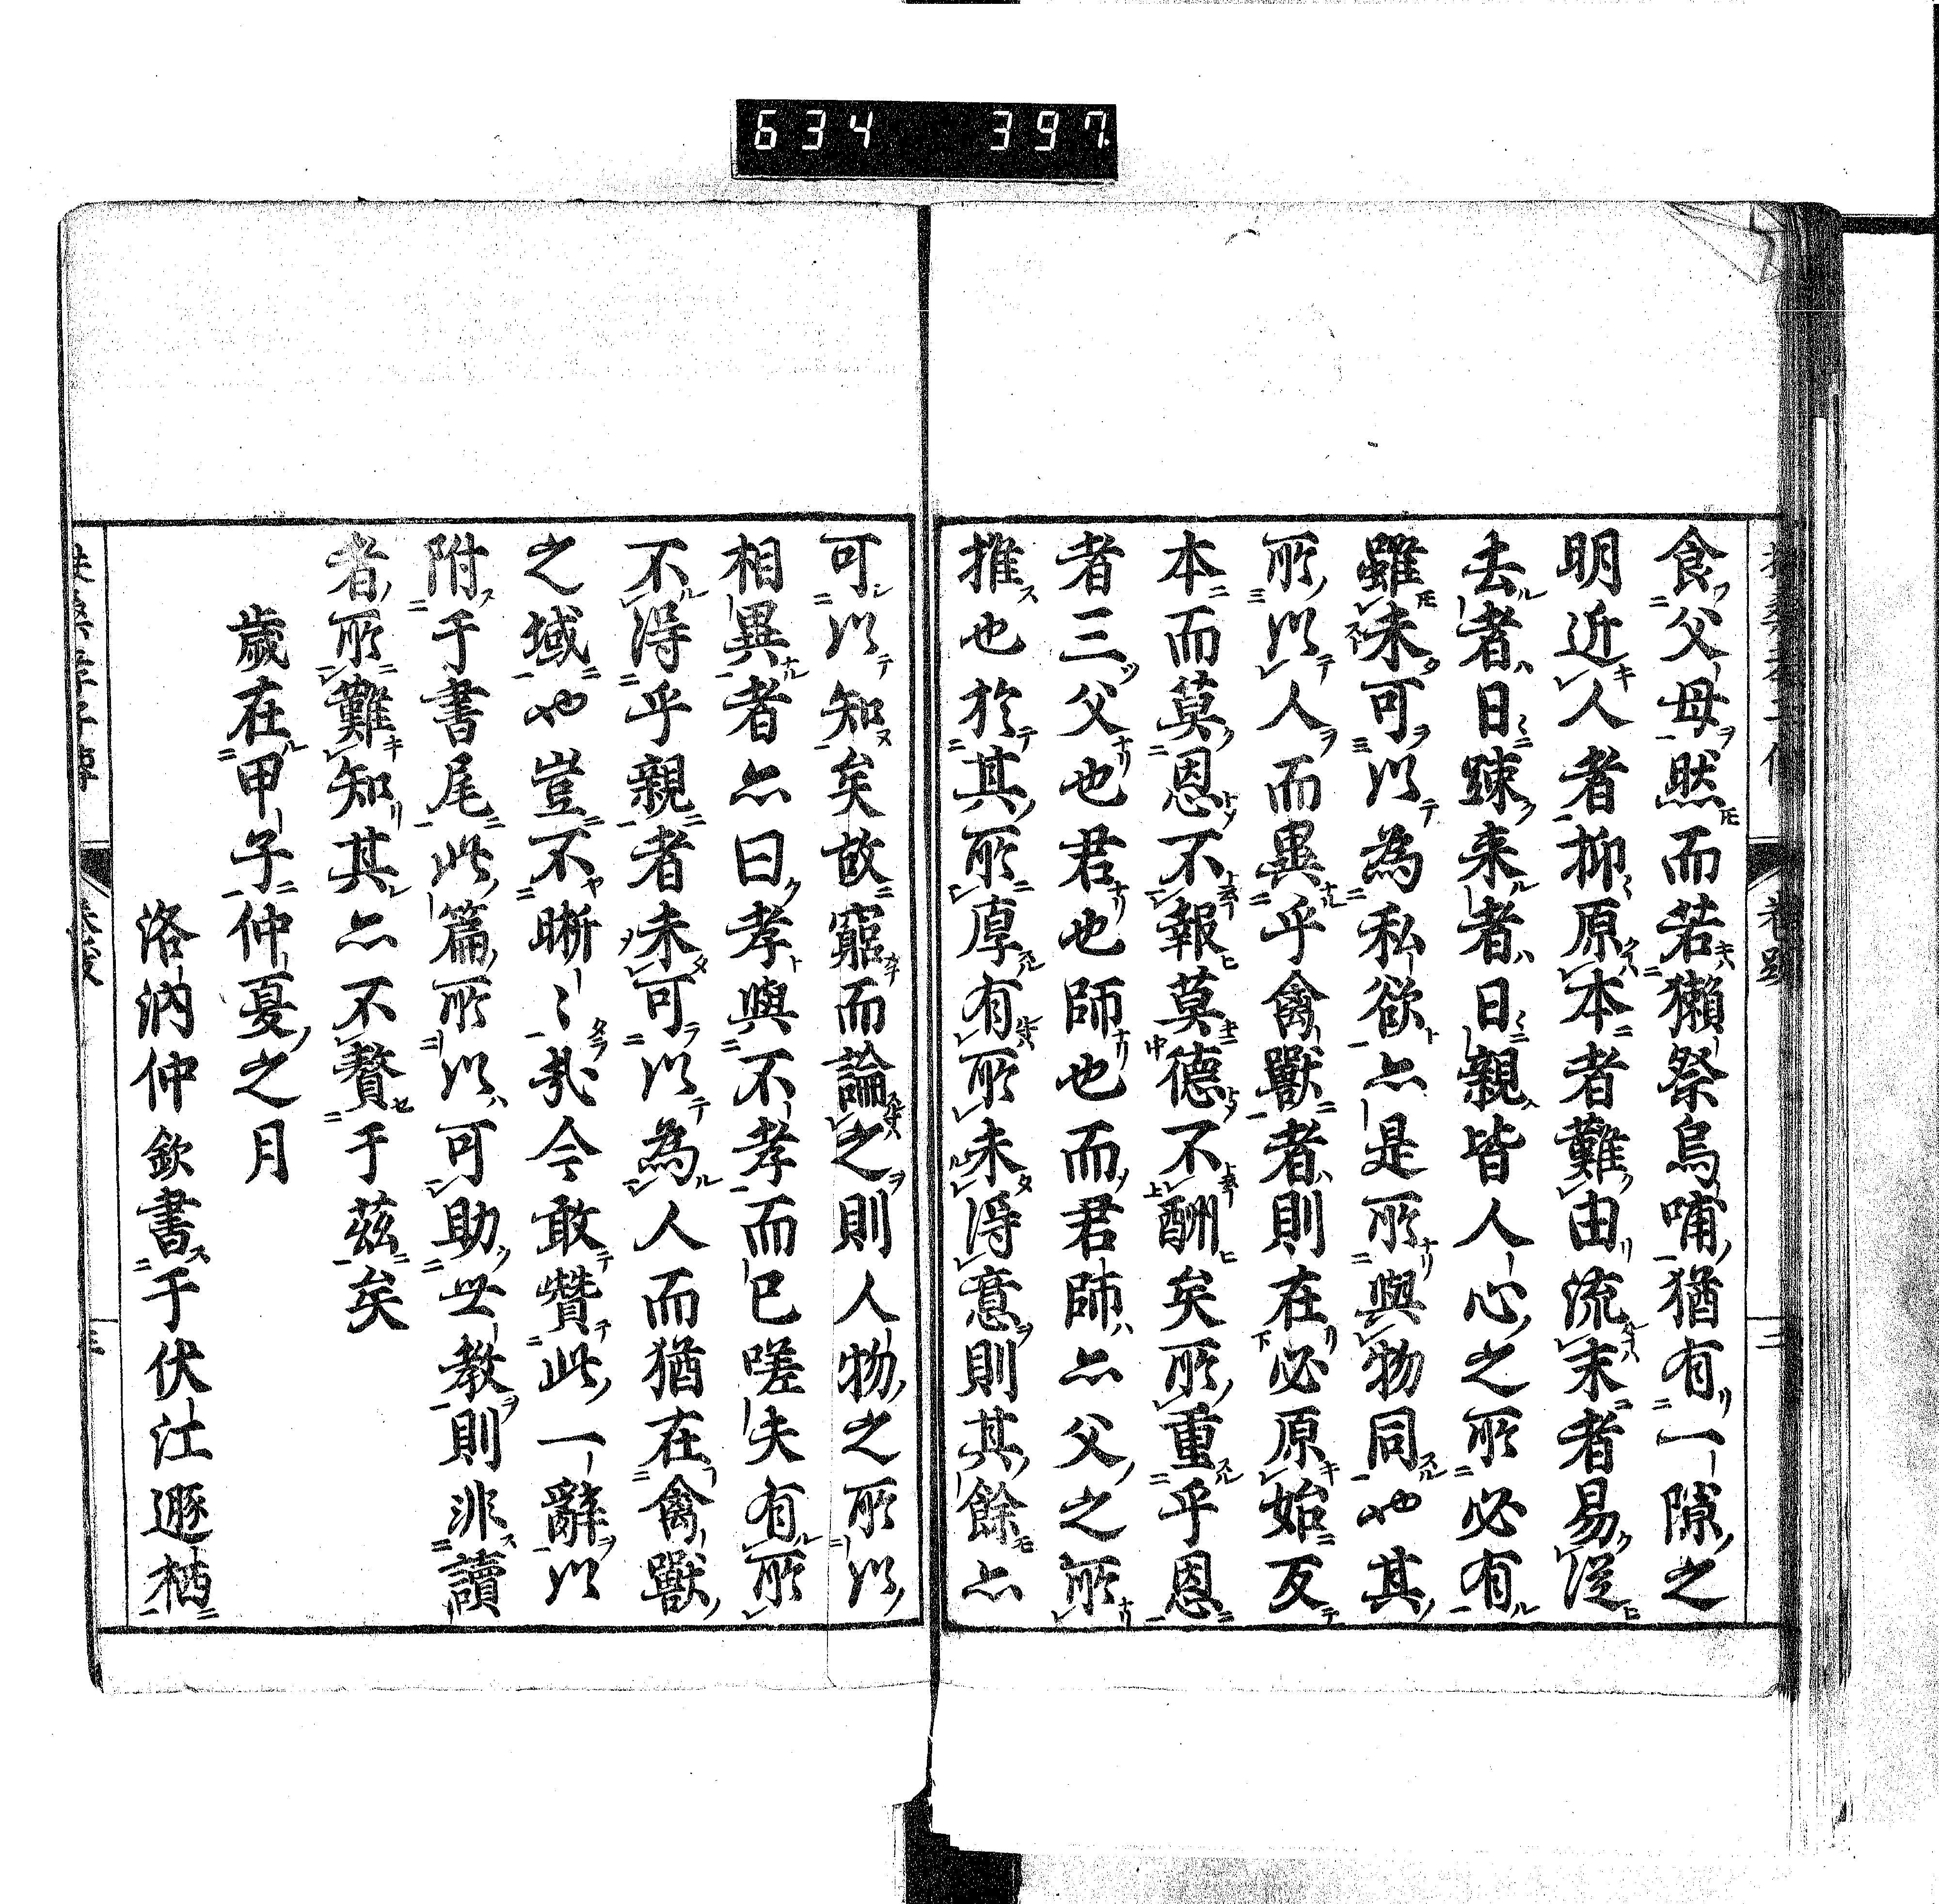 634 397
食父母然而若獺祭烏哺猶有一隙之
明近人者抑原本者難由流末者易從
去者日踈来者日親皆人心之所必有
雖未可以為私欲亦是所與物同也其
所以人而異乎禽獸者則在必原始反
本而莫恩不報莫德不酬矣所重乎恩
者三父也君也師也而君師亦父之所
推也於其所厚有所未得意則其餘亦
可以知矣故窮而論之則人物之所以
相異者亦曰孝與不孝而已嗟夫有所
不得乎親者未可以為人而猶在禽獸
之域也豈不晰〻哉今敢贊此一辭以
附于書尾此篇所以可助世教則非讀
者所難知其亦不贅于茲矣
歲在甲子仲憂之月
洛汭仲欽書于伏江遯栖